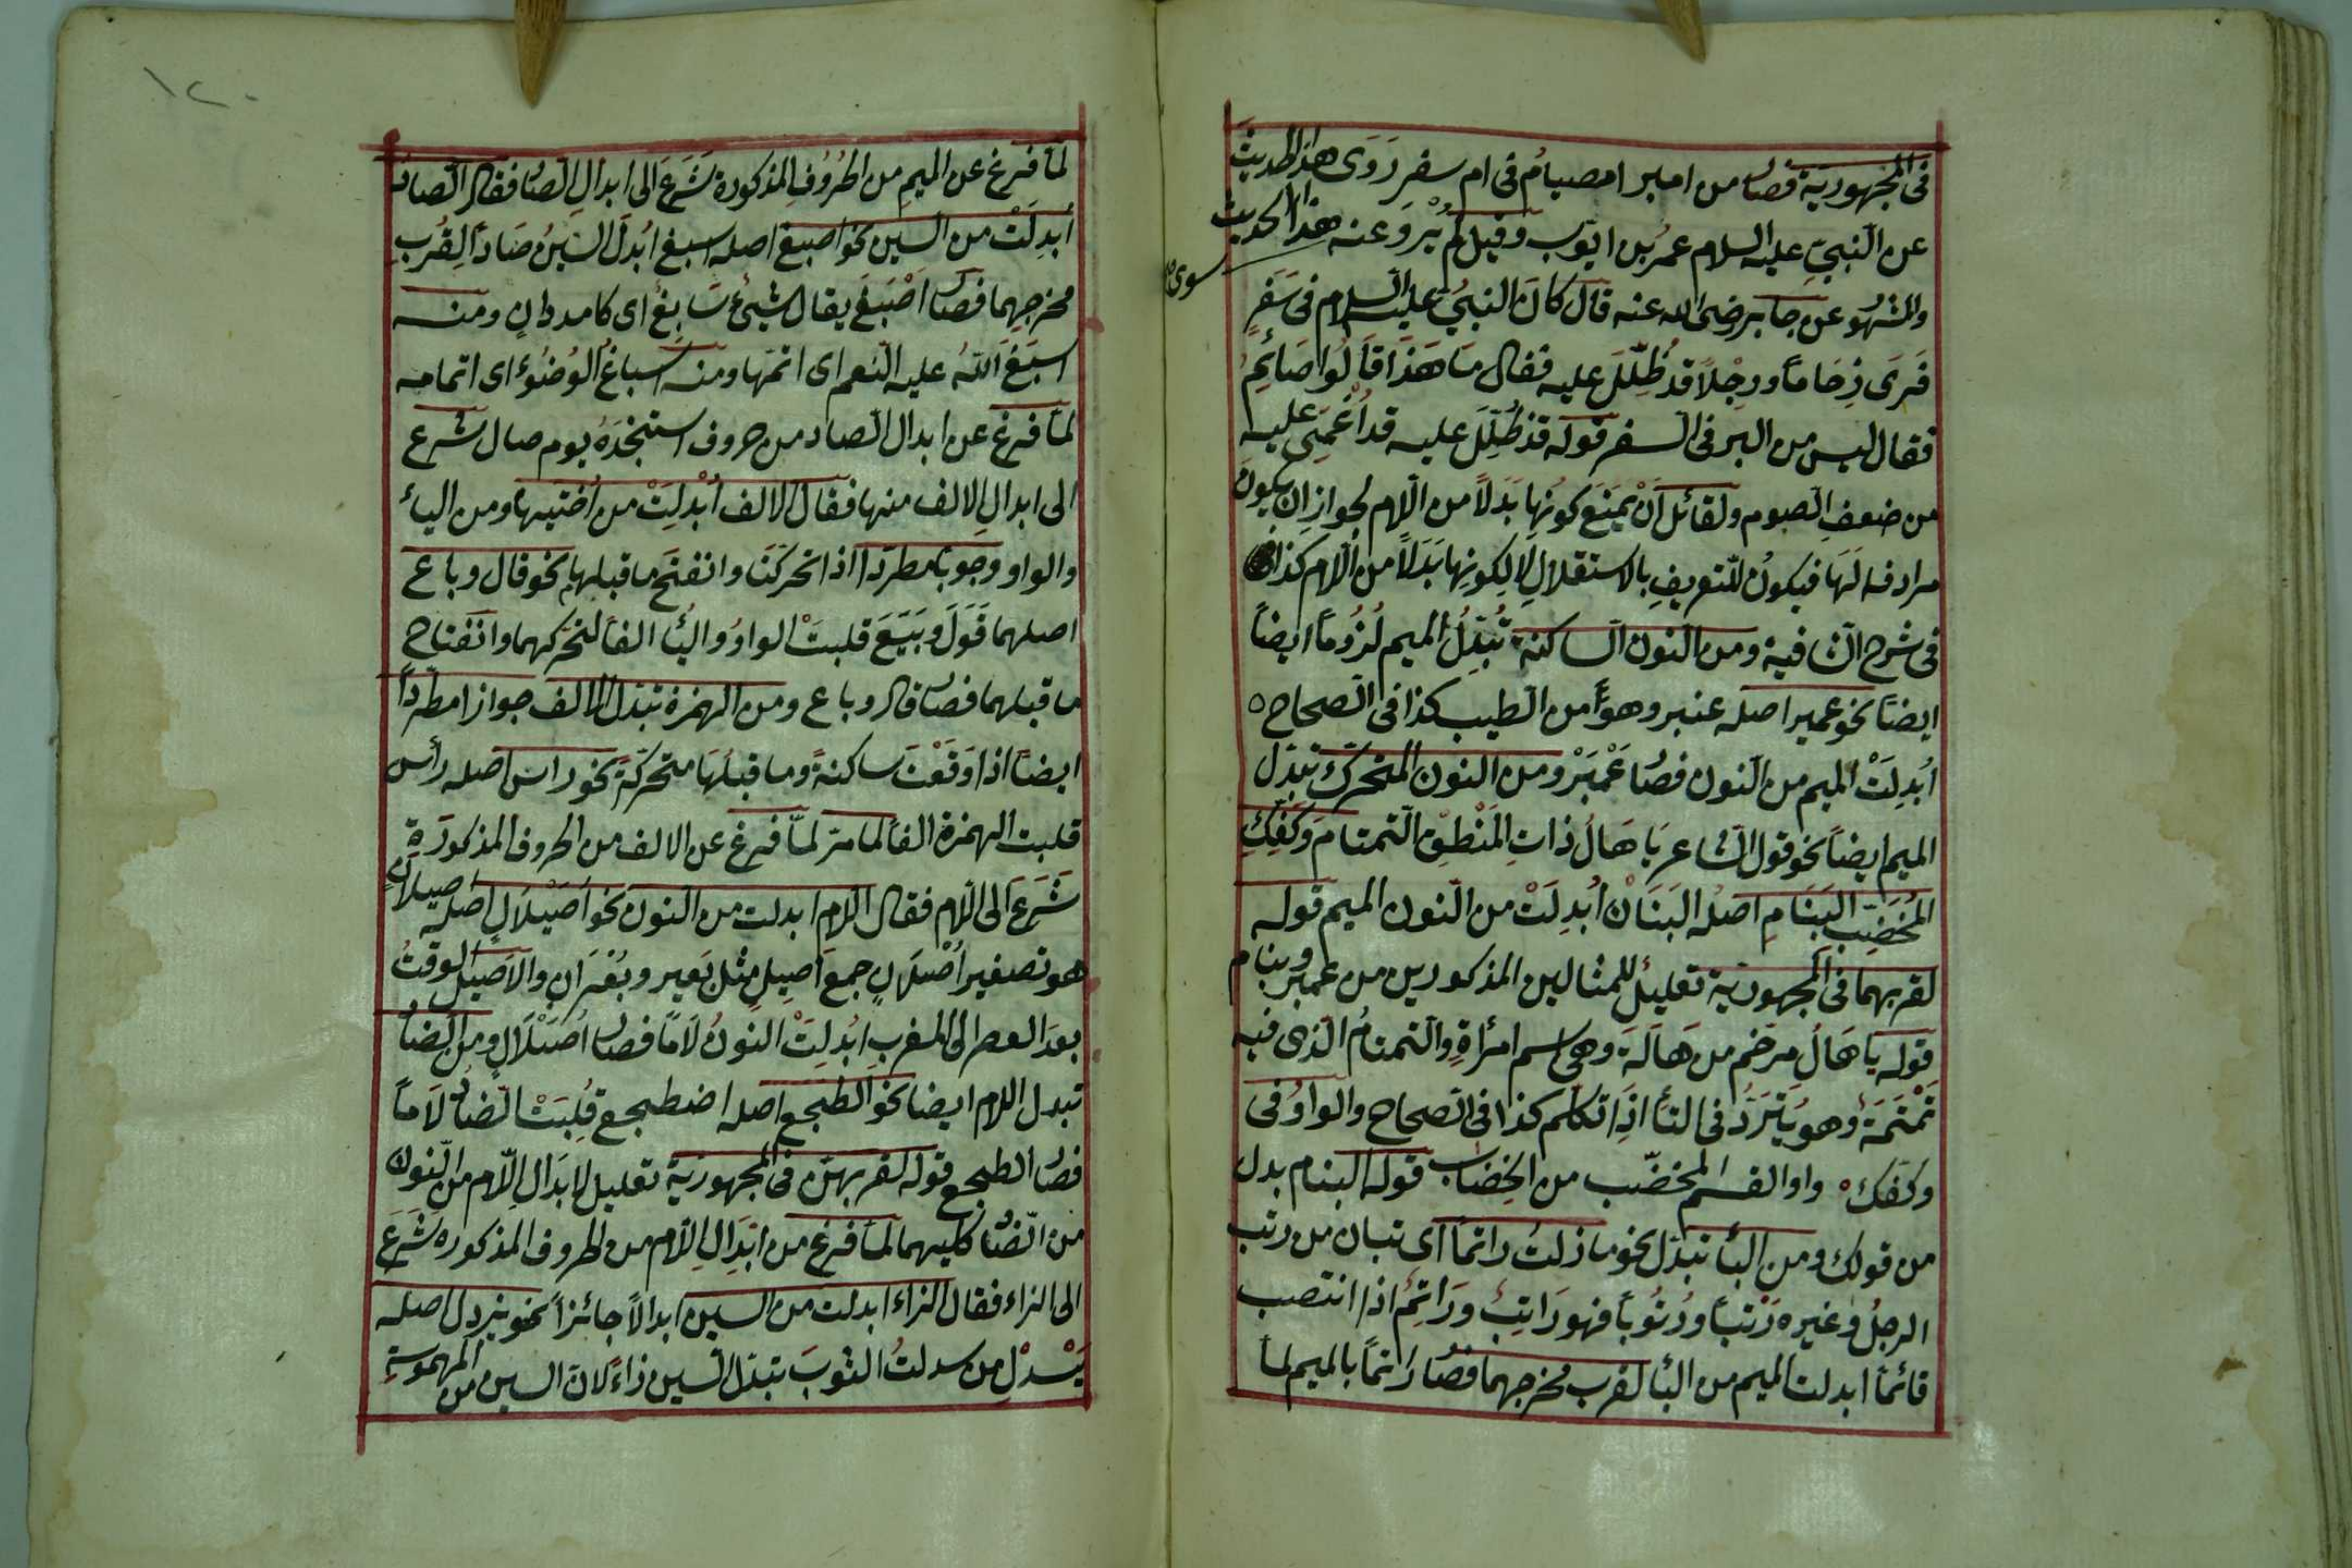 في المجهورية فصار من امبر امصيام في ام سفر رَوَى هذا الحديث
عن النّبيِّ عليه السلام عمرُ بن ايّوب وقيل لم يُرْوَ عنه هذا الحديث
سوى
والمشهُو عن جابر رضى الله عنه قال كانَ النبيُّ عليه السلام في سَفَرٍ
فَرَى زِحَاماً ورجُلاً قد ظُلِّلَ عليه فقال مَا هَذَا قَالُوا صَائِمٌ
فقال ليس من البر في السفر قوله قد ظُلِّلَ عليه قد اُغْمِيَ عليه
من ضعفِ الصوم ولقائل اَنْ يَمْنَعَ كونَها بَدَلاً من اللام لجواز ان يكون
مرادفه لَهَا فيكونُ للتعريفِ بالاستقلالِ لا لِكونِها بَدَلاً من اللام كذا
في شرح الشافية ومن النون الساكنة تُبْدَلُ الميم لُزُوماً ايضاً
ايضاً نحو عمبر اصله عنبر وهو من الطيب كذا في الصحاح ٥
اُبدِلَتْ الميم من النون فصا عَمْبَرْ ومن النون المتحرّك تبدل
الميم ايضاً نحو قول الشاعر يَا هَالُ ذاتِ المَنْطِقِ التمتامَ وكفِّكِ
المُخضَّب البَنَامِ اصله البَنَانْ اُبدِلَتْ من النون الميم قوله
لقربهما في المجهورية تعليلٌ للمثالين المذكورين من عمبر وبنام
قوله يا هَالُ مرخم من هَالَة وهي اسم امرأةٍ والتمتامُ الذى فيه
تَمْتَمَة وهو يَتَرَدَّد في التأ اذا تكلم كذا في الصحاح والواوُ في
وكفّك واو القسم المخضّب من الخِضَاب قوله البنام بدل
من قولك ومن البأ تبدل نحو ما زلتُ راتماً اى تبان من رتب
الرجلُ وغيره رَتْباً ورُتُوباً فهو رَاتِبٌ ورَاتِمٌ اذا انتصب
قائماً ابدلت الميم من البأ لقرب مخرجهما فصا رَاتماً بالميم لما
١٢٠
لمّا فرغ عن الميمِ من الحُرُوفِ المذكورة شَرَعَ الى ابدالِ الصا فقال الصاد
اُبدِلَتْ من السين نحو اصبغ اصله اسبغ ابُدلَ السّينُ صَاداً لِقُربِ
مخرجِهِمَا فصا اَصْبَغَ يقال شَيْئٌ سَابِغٌ اى كامد وانٍ ومنه
اسبَغَ اللهُ عليه النّعم اى اتمّها ومنه اسباغُ الوُضُوءِ اى اتمامه
لمّا فرغ عن ابدال الصاد من حروف استنجَدَهُ يوم صال شرع
الى ابدالِ الالف منها فقال الالف اُبْدِلَتْ من اُختيها ومن اليأ
والواو وجوباً مطردا اذا تحركَتَا وانفتحَ ما قبلهما نحو قال وباع
اصلهما قَوَلَ وبَيَعَ قلبتْ الواوُ واليأ الفاً لتحركهما وانفتاح
ما قبلهما فصا قال وباع ومن الهمزة تبدل الالف جوازا مطرداً
ايضاً اذا وَقَعْتَ ساكنةً وما قبلَهَا متحركَةً نحو راس اصله رأس
قلبت الهمزة الفاً لما مرّ لمّا فرغ عن الالف من الحروف المذكورَة
شَرَعَ الى اللام فقال اللام ابدلت من النون نحو اُصَيْلَالٍ اصله اُصيلانٍ
هو تصغير اُصْلَانٍ جمعَ اَصِيلٍ مثل بَعير وبُعْرَانٍ والاَصيل الوقتُ
بعدَ العصر الى المغرب اُبدِلَتْ النونُ لاماً فصا اُصَيْلَالٍ ومن الضا
تبدل اللام ايضا نحو الطجع اصله اضطجع قُلِبَتْ الضا لَاماً
فصا الطجع قوله لقربهنّ في المجهورية تعليل لابدَالِ اللّام من النون
من الضا كليهما لمّا فرغ من ابدَالِ اللام من الحروف المذكوره شَرَعَ
الى الزاء فقال الزاء ابدلت من السين ابدالاً جائزاً نحو يزدل اصله
يَسْدل من سدلتُ الثوبَ تبدل السين زاءً لان السين من المهموسة